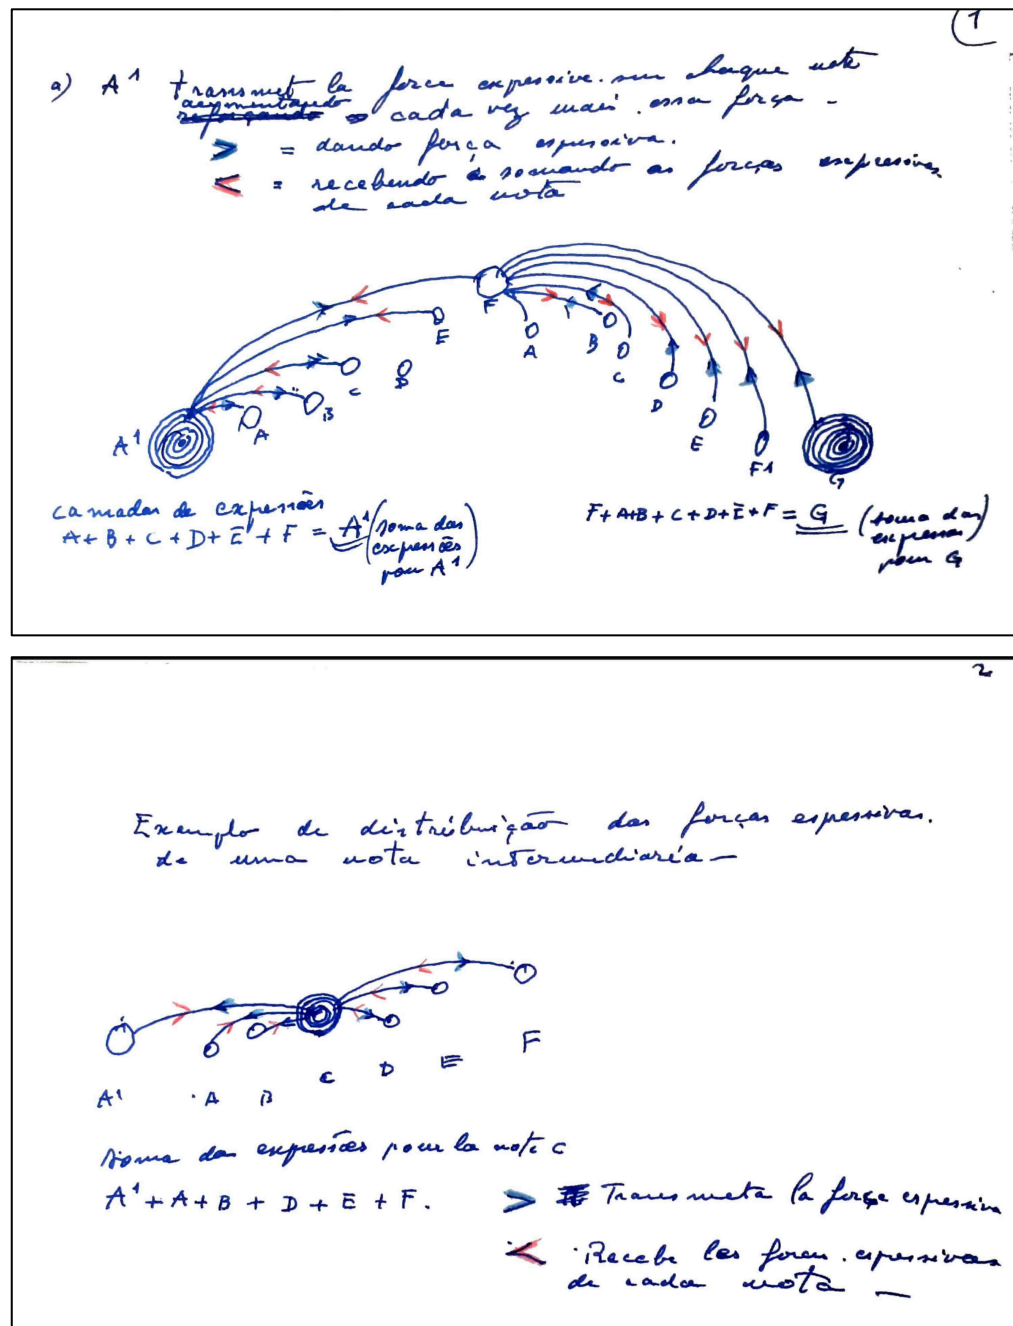 1
a) A¹ transmet la force expressive sur chaque note
augmentando
reforçando cada vez mais essa força -
> = dando força espressiva.
< = recebendo e somando as forças expressivas
de cada nota
F
E
A
B
C
D
E
F1
G
A¹
A
B
C
D
camadas de expessões
A + B + C + D + E + F = A¹ (soma das
expessões
pour A¹)
F + A + B + C + D + E + F = G (soma das
expessoes
pour G)
2
Exemplo de distribuição das forças espessivas.
de uma nota intermediaria —
A¹ A B C D E F
soma das expessões pour la note C
A¹ + A + B + D + E + F.
> Transmeta la force espessiva
< Recebe les forces espressivas
de cada nota —